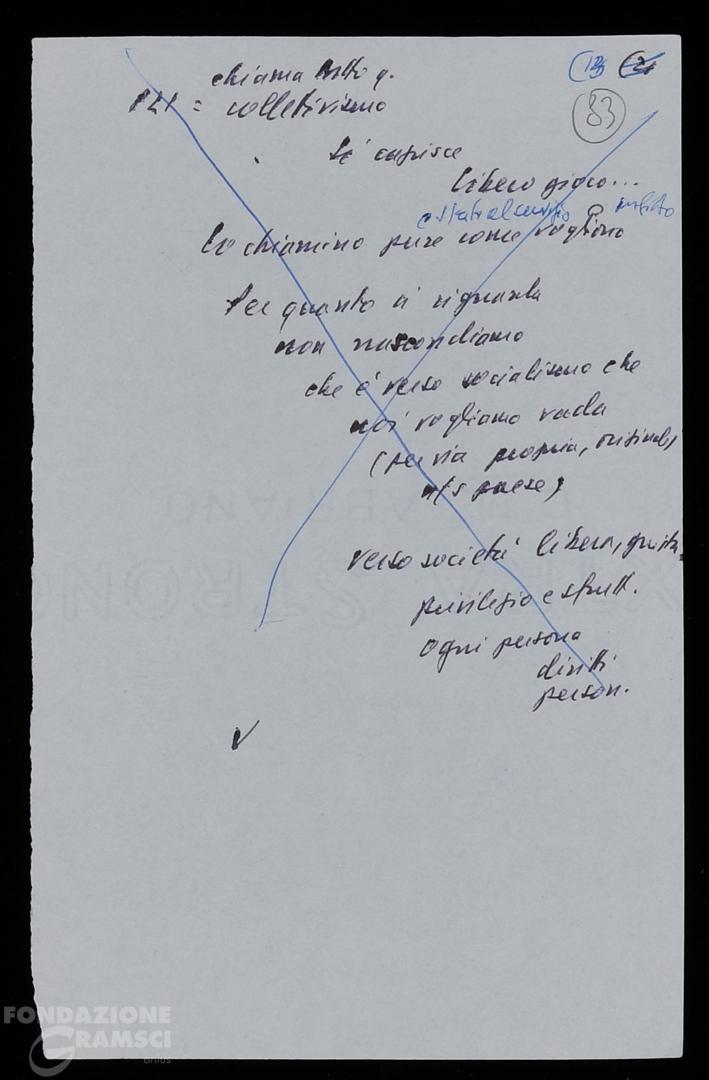 chiama tutto q.
PLI = colletivismo
Si capisce
libero gioco...
e Stato al servizio
Lo chiamino pure come vogliono
Per quanto ci riguarda
non nascondiamo
che è verso socialismo che
noi vogliamo vada
(per via propria, original)
n/s paese)
verso società libera, giusta
privilegio e sfrutt.
ogni persona
diritti
person.
V
(13
83
FONDAZIONE
GRAMSCI
onlus